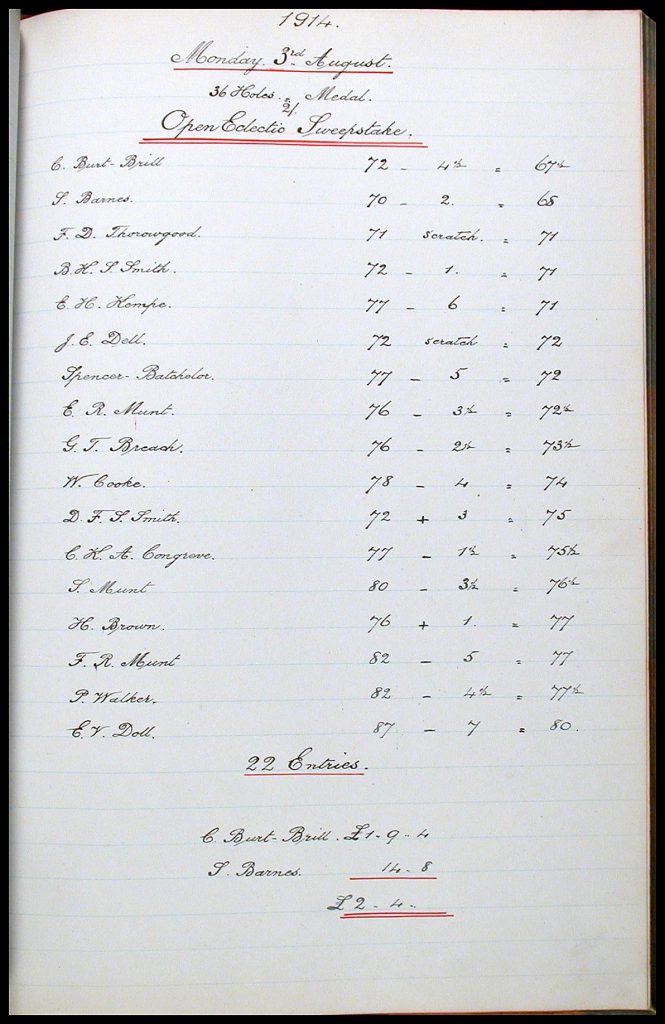 1914.
Monday. 3rd August.
36 Holes. = Medal.
2/.
Open Eclectic Sweepstake.
C. Burt-Brill 72 - 4½ = 67½
S. Barnes. 70 - 2. = 68
F. D. Thorowgood. 71 scratch. = 71
B. H. S. Smith. 72 - 1. = 71
E. H. Kempe. 77 - 6 = 71
J. E. Dell. 72 scratch = 72
Spencer-Batchelor. 77 - 5 = 72
E. R. Munt. 76 - 3½ = 72½
G. T. Breach. 76 - 2½ = 73½
W. Cooke. 78 - 4 = 74
D. F. S. Smith. 72 + 3 = 75
C. H. A. Congreve. 77 - 1½ = 75½
S. Munt 80 - 3½ = 76½
H. Brown. 76 + 1. = 77
F. R. Munt 82 - 5 = 77
P. Walker. 82 - 4½ = 77½
E. V. Doll. 87 - 7 = 80.
22 Entries.
C. Burt-Brill. £1 - 9 - 4
S. Barnes. 14 - 8
£2 - 4 -